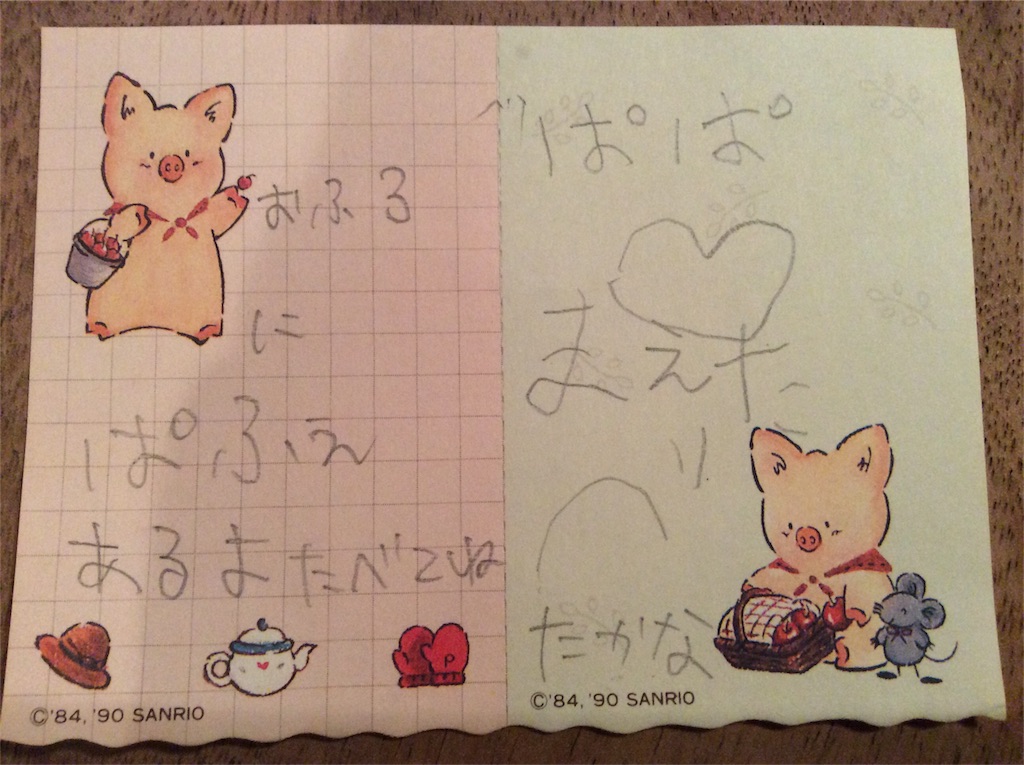 おふる
に
ぱふぇ
あるよたべてね
©'84, '90 SANRIO
ぱぱ
まえた
り
たかな
P
©'84, '90 SANRIO